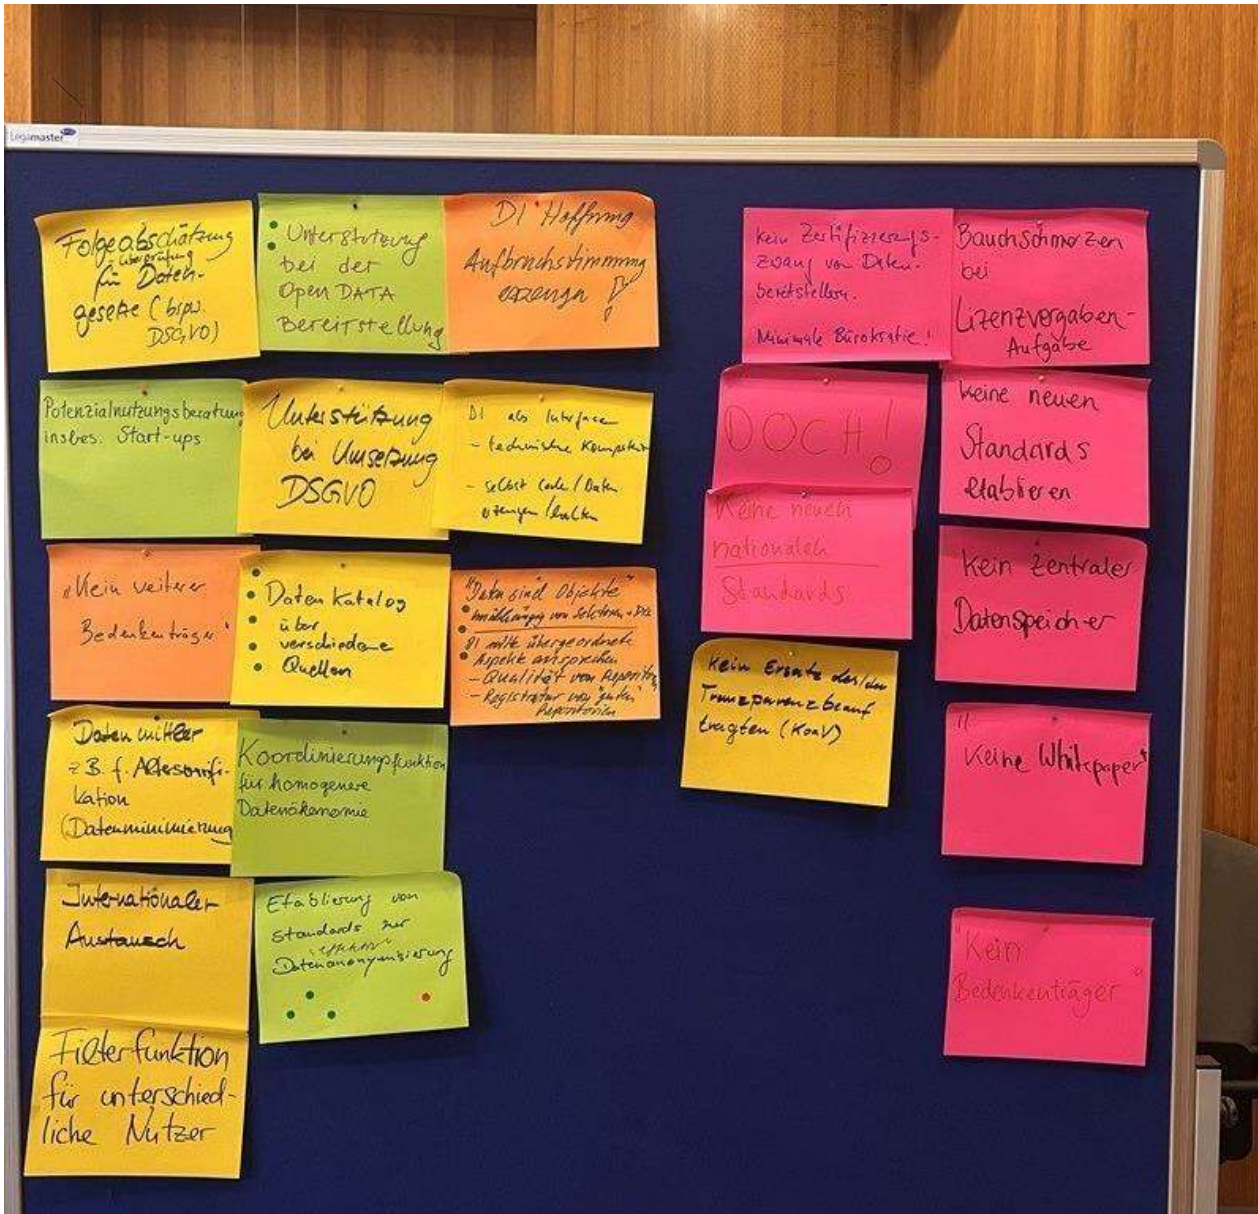 Legamaster
Folgeabschätzung
überprüfung
für Daten-
gesetze (bspw.
DSGVO)
Unterstützung
bei der
Open DATA
Bereitstellung
DI Hoffnung
Aufbruchstimmung
erzeugen !
Potenzialnutzungsberatung
insbes. Start-ups
Unterstützung
bei Umsetzung
DSGVO
DI als Interface
- technische Kompetenz
- selbst Code / Daten
erzeugen / halten
"Kein weiterer
Bedenkenträger"
Datenkatalog
über
verschiedene
Quellen
"Daten sind Objekte"
unabhängig von Sektoren
DI sollte übergeordnete
Aspekte ansprechen
- Qualität von Repositor
- Registratur von "guten"
Repositorien
Datenmittler
z.B. f.
kation
(Datenminimierung
Koordinierungsfunktion
für homogenere
Datenökonomie
Internationaler
Austausch
Etablierung von
Standards zur
"effektiv"
Datenanonymisierung
Filterfunktion
für unterschied-
liche Nutzer
kein Zertifizierungs-
zwang von Daten-
bereitstellern.
Minimale Bürokratie!
Bauchschmerzen
bei
Lizenzvergaben-
Aufgabe
DOCH!
Keine neuen
nationalen
Standards
Keine neuen
Standards
etablieren
Kein Zentraler
Datenspeicher
Kein Ersatz des/der
Transparenzbeauf
tragten (KoaV)
"
Keine Whitepaper"
"Kein
Bedenkenträger"